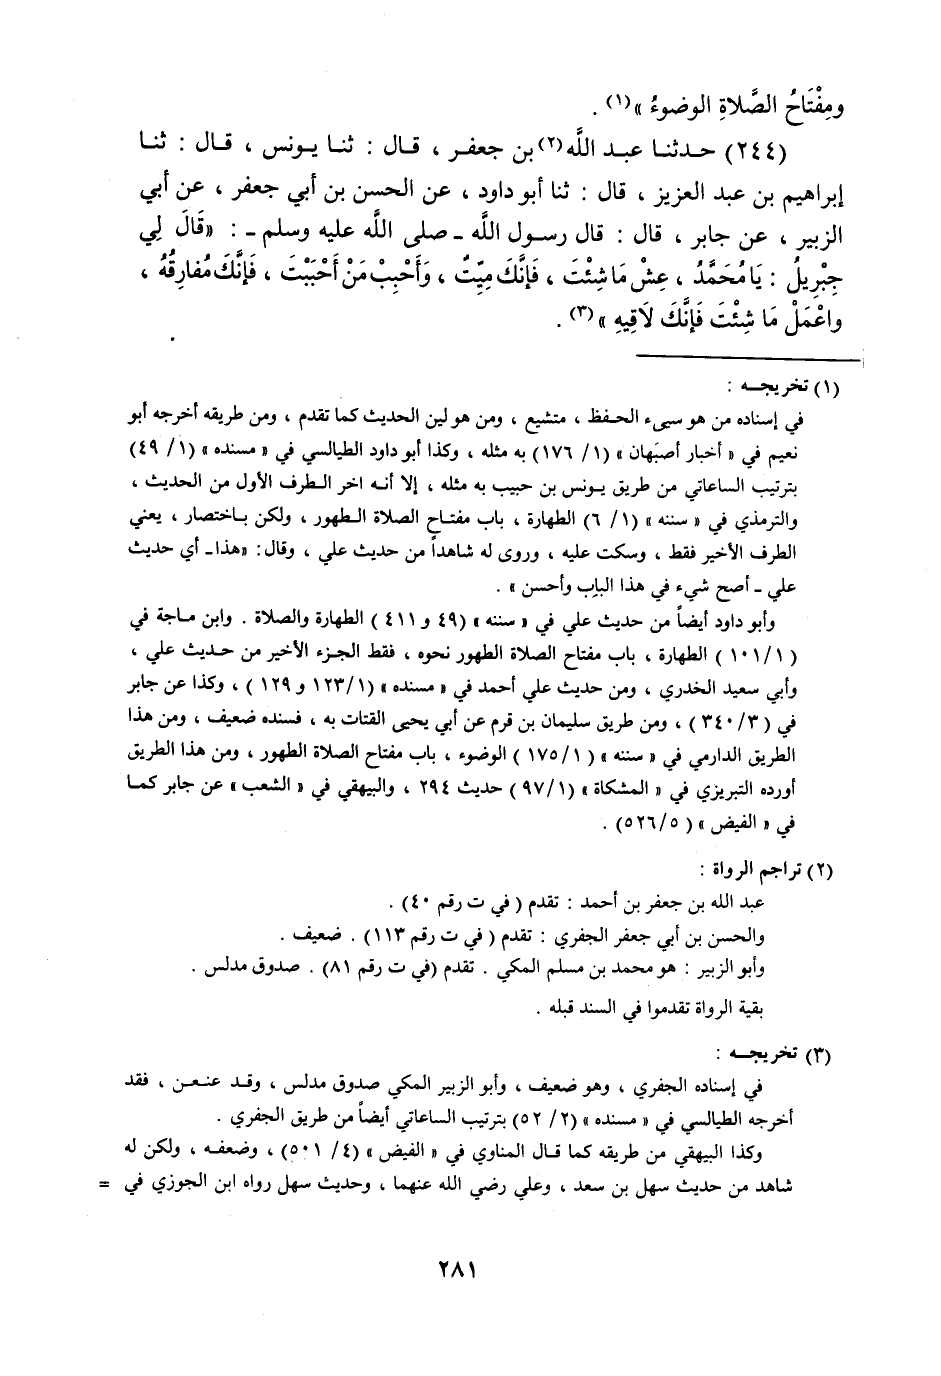 ومِفْتَاحُ الصَّلاةِ الوضوءُ »(١) .
(٢٤٤) حدثنا عبد اللَّه(٢)بن جعفر ، قال : ثنا يونس ، قال : ثنا
إبراهيم بن عبد العزيز ، قال : ثنا أبو داود ، عن الحسن بن أبي جعفر ، عن أبي
الزبير ، عن جابر ، قال : قال رسول اللَّه ـ صلى اللَّه عليه وسلم ـ : «قَالَ لِي
جِبْرِيلُ : يَا مُحَمَّدُ ، عِشْ مَا شِئْتَ ، فَإِنَّكَ مِيِّتٌ ، وَأَحْبِبْ مَنْ أَحْبَبْتَ ، فَإِنَّكَ مُفارِقُهُ ،
واعْمَلْ مَا شِئْتَ فَإِنَّكَ لَاقِيهِ »(٣) .
(١) تخريجـه :
في إسناده من هو سيىء الحفظ ، متشيع ، ومن هو لين الحديث كما تقدم ، ومن طريقه أخرجه أبو
نعيم في « أخبار أصبَهان » (١/ ١٧٦) به مثله ، وكذا أبو داود الطيالسي في « مسنده » (١/ ٤٩)
بترتيب الساعاتي من طريق يونس بن حبيب به مثله ، إلا أنه اخر الطرف الأول من الحديث ،
والترمذي في « سننه » (١/ ٦) الطهارة ، باب مفتاح الصلاة الطهور ، ولكن باختصار ، يعني
الطرف الأخير فقط ، وسكت عليه ، وروى له شاهداً من حديث علي ، وقال: «هذا ـ أي حديث
علي ـ أصح شيء في هذا الباب وأحسن » .
وأبو داود أيضاً من حديث علي في « سننه » (٤٩ و ٤١١) الطهارة والصلاة . وابن ماجة في
(١/ ١٠١) الطهارة ، باب مفتاح الصلاة الطهور نحوه ، فقط الجزء الأخير من حديث علي ،
وأبي سعيد الخدري ، ومن حديث علي أحمد في « مسنده » (١/ ١٢٣ و ١٢٩) ، وكذا عن جابر
في (٣/ ٣٤٠) ، ومن طريق سليمان بن قرم عن أبي يحيى القتات به ، فسنده ضعيف ، ومن هذا
الطريق الدارمي في « سننه » (١/ ١٧٥) الوضوء ، باب مفتاح الصلاة الطهور ، ومن هذا الطريق
أورده التبريزي في « المشكاة » (١/ ٩٧) حديث ٢٩٤ ، والبيهقي في « الشعب » عن جابر كمـا
في « الفيض » (٥/ ٥٢٦) .
(٢) تراجم الرواة :
عبد الله بن جعفر بن أحمد : تقدم ( في ت رقم ٤٠) .
والحسن بن أبي جعفر الجفري : تقدم ( في ت رقم ١١٣) . ضعيف .
وأبو الزبير : هو محمد بن مسلم المكي . تقدم (في ت رقم ٨١) . صدوق مدلس .
بقية الرواة تقدموا في السند قبله .
(٣) تخريجـه :
في إسناده الجفري ، وهو ضعيف ، وأبو الزبير المكي صدوق مدلس ، وقد عنعن ، فقد
أخرجه الطيالسي في « مسنده » (٢/ ٥٢) بترتيب الساعاتي أيضاً من طريق الجفري .
وكذا البيهقي من طريقه كما قال المناوي في « الفيض » (٤/ ٥٠١) ، وضعفه ، ولكن له
شاهد من حديث سهل بن سعد ، وعلي رضي الله عنهما ، وحديث سهل رواه ابن الجوزي في =
٢٨١